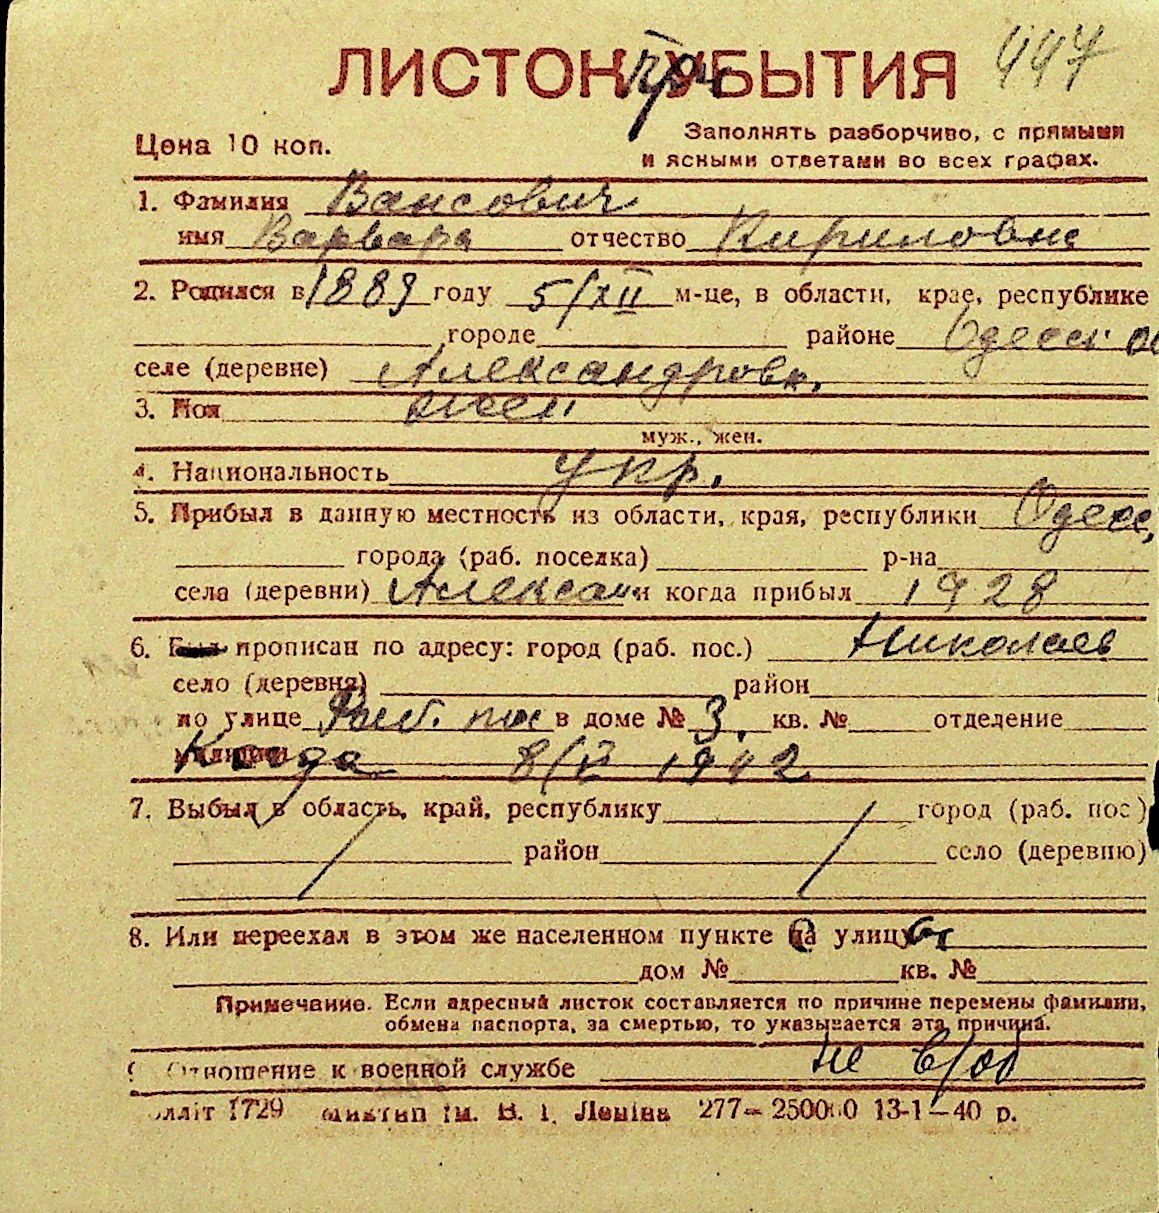 447
ЛИСТОК УБЫТИЯ
Цена 10 коп.
Заполнять разборчиво, с прямыми
и ясными ответами во всех графах.
1. Фамилия Вансович
имя Варвара отчество Кириловне
2. Родился в 1889 году 5/XII м-це, в области, крае, республике
городе районе Одесск. об
селе (деревне) Александровк.
3. Пол жен.
муж., жен.
4. Национальность Укр.
5. Прибыл в данную местность из области, края, республики Одесс,
города (раб. поселка) р-на
села (деревни) Алексан и когда прибыл 1928
6. Был прописан по адресу: город (раб. пос.) Николаев
село (деревня) район
по улице Раб. пос в доме № 3. кв. № отделение
милиции Когда 8/V 1942
7. Выбыл в область, край, республику город (раб. пос)
район село (деревню)
8. Или переехал в этом же населенном пункте на улицу
дом № кв. №
Примечание. Если адресный листок составляется по причине перемены фамилии,
обмена паспорта, за смертью, то указывается эта причина.
Отношение к военной службе не в/об
лліт 1729 ім. В. І. Леніна 277— 250000 13-1—40 р.